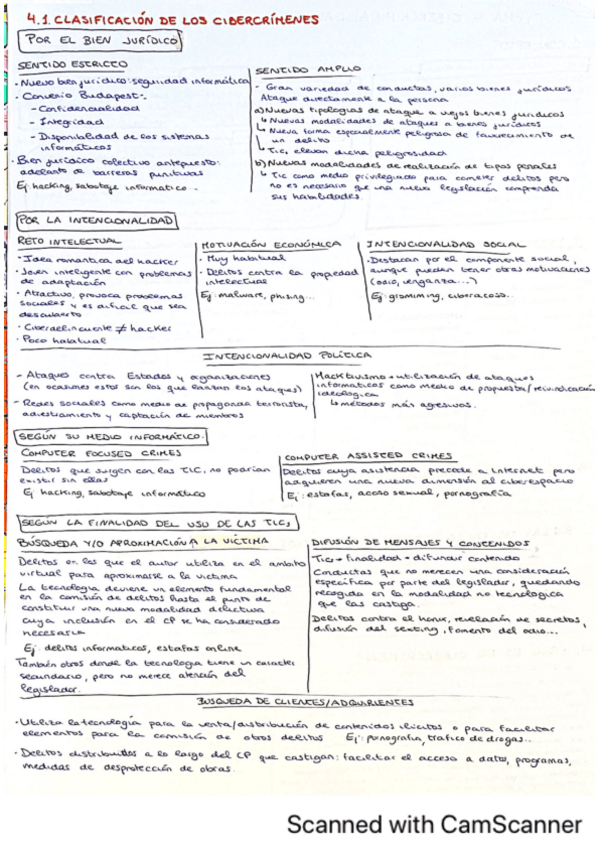 4.1. CLASIFICACIÓN DE LOS CIBERCRÍMENES
POR EL BIEN JURÍDICO
SENTIDO ESTRICTO
- Nuevo bien jurídico: seguridad informática
- Convenio Budapest:
- Confidencialidad
- Integridad
- Disponibilidad de los sistemas
informáticos
- Bien jurídico colectivo antepuesto:
adelanto de barreras punitivas
Ej: hacking, sabotaje informatico...
SENTIDO AMPLIO
- Gran variedad de conductas, varios bienes jurídicos
Ataque directamente a la persona
a) Nuevas tipologías de ataque a viejos bienes jurídicos
↳ Nuevas modalidades de ataques a bienes jurídicos
↳ Nueva forma especialmente peligrosa de favorecimiento de
un delito
↳ Tic, elevan dicha peligrosidad
b) Nuevas modalidades de realización de tipos penales
↳ Tic como medio privilegiado para cometer delitos pero
no es necesario que una nueva legislación comprenda
sus habilidades.
POR LA INTENCIONALIDAD
RETO INTELECTUAL
· Idea romantica del hacker
· Joven inteligente con problemas
de adaptación
· Atractivo, provoca problemas
sociales y es dificil que sea
descubierto
· Ciberdelincuente ≠ hacker
· Poco habitual
MOTIVACIÓN ECONÓMICA
· Muy habitual
· Delitos contra la propiedad
intelectual
Ej: malware, phising...
INTENCIONALIDAD SOCIAL
· Destacan por el componente social,
aunque pueden tener otras motivaciones
(odio, venganza...)
Ej: gromiming, ciberacoso...
INTENCIONALIDAD POLÍTICA
- Ataques contra Estados y organizaciones
(en ocasiones estos son los que lanzan los ataques)
- Redes sociales como medio de propaganda terrorista,
adiestramiento y captación de miembros
Hacktivismo = utilización de ataques
informaticos como medio de propuesta/reivindicación
ideologica
↳ métodos más agresivos.
SEGÚN SU MEDIO INFORMÁTICO.
COMPUTER FOCUSED CRIMES
Delitos que surgen con las TIC, no podrían
existir sin ellas
Ej: hacking, sabotaje informático
COMPUTER ASSISTED CRIMES
Delitos cuya asistencia precede a internet pero
adquieren una nueva dimensión al ciberespacio
Ej: estafas, acoso sexual, pornografía
SEGUN LA FINALIDAD DEL USO DE LAS TIC,
BÚSQUEDA Y/O APROXIMACIÓN A LA VÍCTIMA
Delitos en los que el autor utiliza en el ambito
virtual para aproximarse a la victima
La tecnología deviene un elemento fundamental
en la comisión de delitos hasta el punto de
constituir una nueva modalidad delictiva
cuya inclusión en el CP se ha considerado
necesaria
Ej: delitos informaticos, estafas online
También otros donde la tecnologia tiene un carácter
secundario, pero no merece atención del
legislador.
DIFUSIÓN DE MENSAJES Y CONTENIDOS
· Tic = finalidad = difundir contenido
Conductas que no merecen una consideración
específica por parte del legislador, quedando
recogida en la modalidad no tecnologica
que las castiga.
Delitos contra el honor, revelación de secretos,
difusión del sexting, fomento del odio...
BUSQUEDA DE CLIENTES/ADQUIRIENTES
· Utiliza la tecnología para la venta/distribución de contenidos ilícitos o para facilitar
elementos para la comisión de otros delitos Ej: pornografia, trafico de drogas...
· Delitos distribuidos a lo largo del CP que castigan: facilitar el acceso a datos, programas,
medidas de desprotección de obras.
Scanned with CamScanner